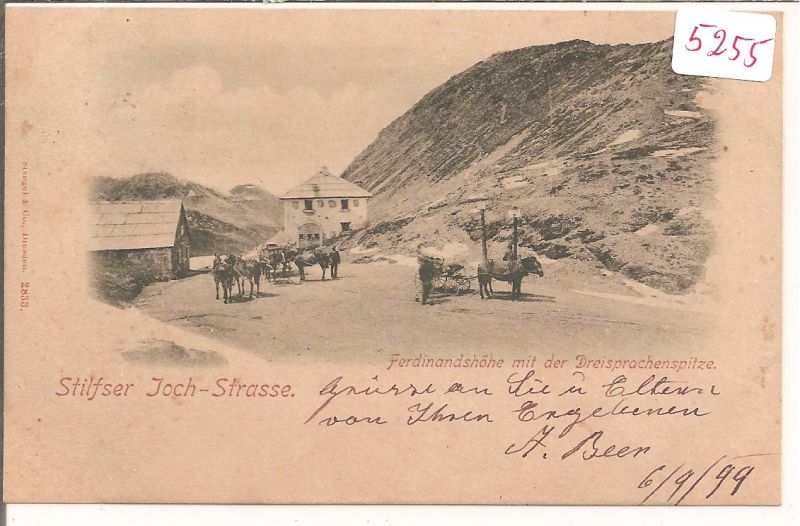 5255
Stengel & Co., Dresden. 2833.
Ferdinandshöhe mit der Dreisprachenspitze.
Stilfser Joch-Strasse.
Grüsse an Sie u Eltern
von Ihren Ergebenen
A. Beer
6/9/99